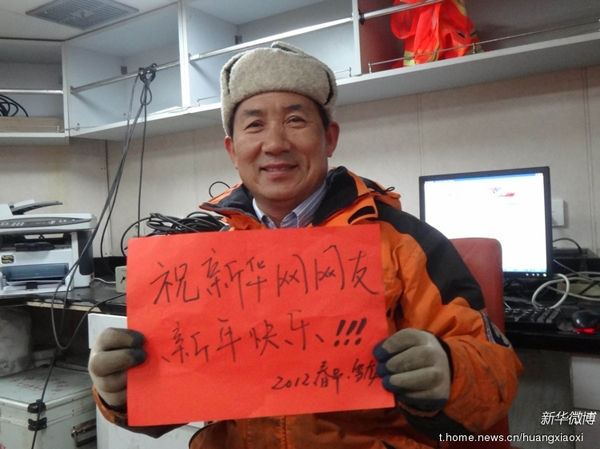 祝新华网网友
新年快乐!!!
2012春节·雪龙
新华微博
t.home.news.cn/huangxiaoxi